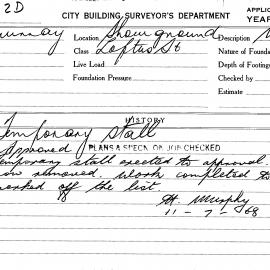 2D
CITY BUILDING SURVEYOR'S DEPARTMENT
APPLIC
YEAR
Location Showground
Description
Class Loftus St
Nature of Founda
Live Load
Depth of Footing
Foundation Pressure
Checked by
Estimate
HISTORY
Temporary Stall
Approved PLANS & SPECN ON JOB CHECKED
temporary stall erected to approval.
removed. Work completed to
marked off the list.
H. Murphy
11-7-68